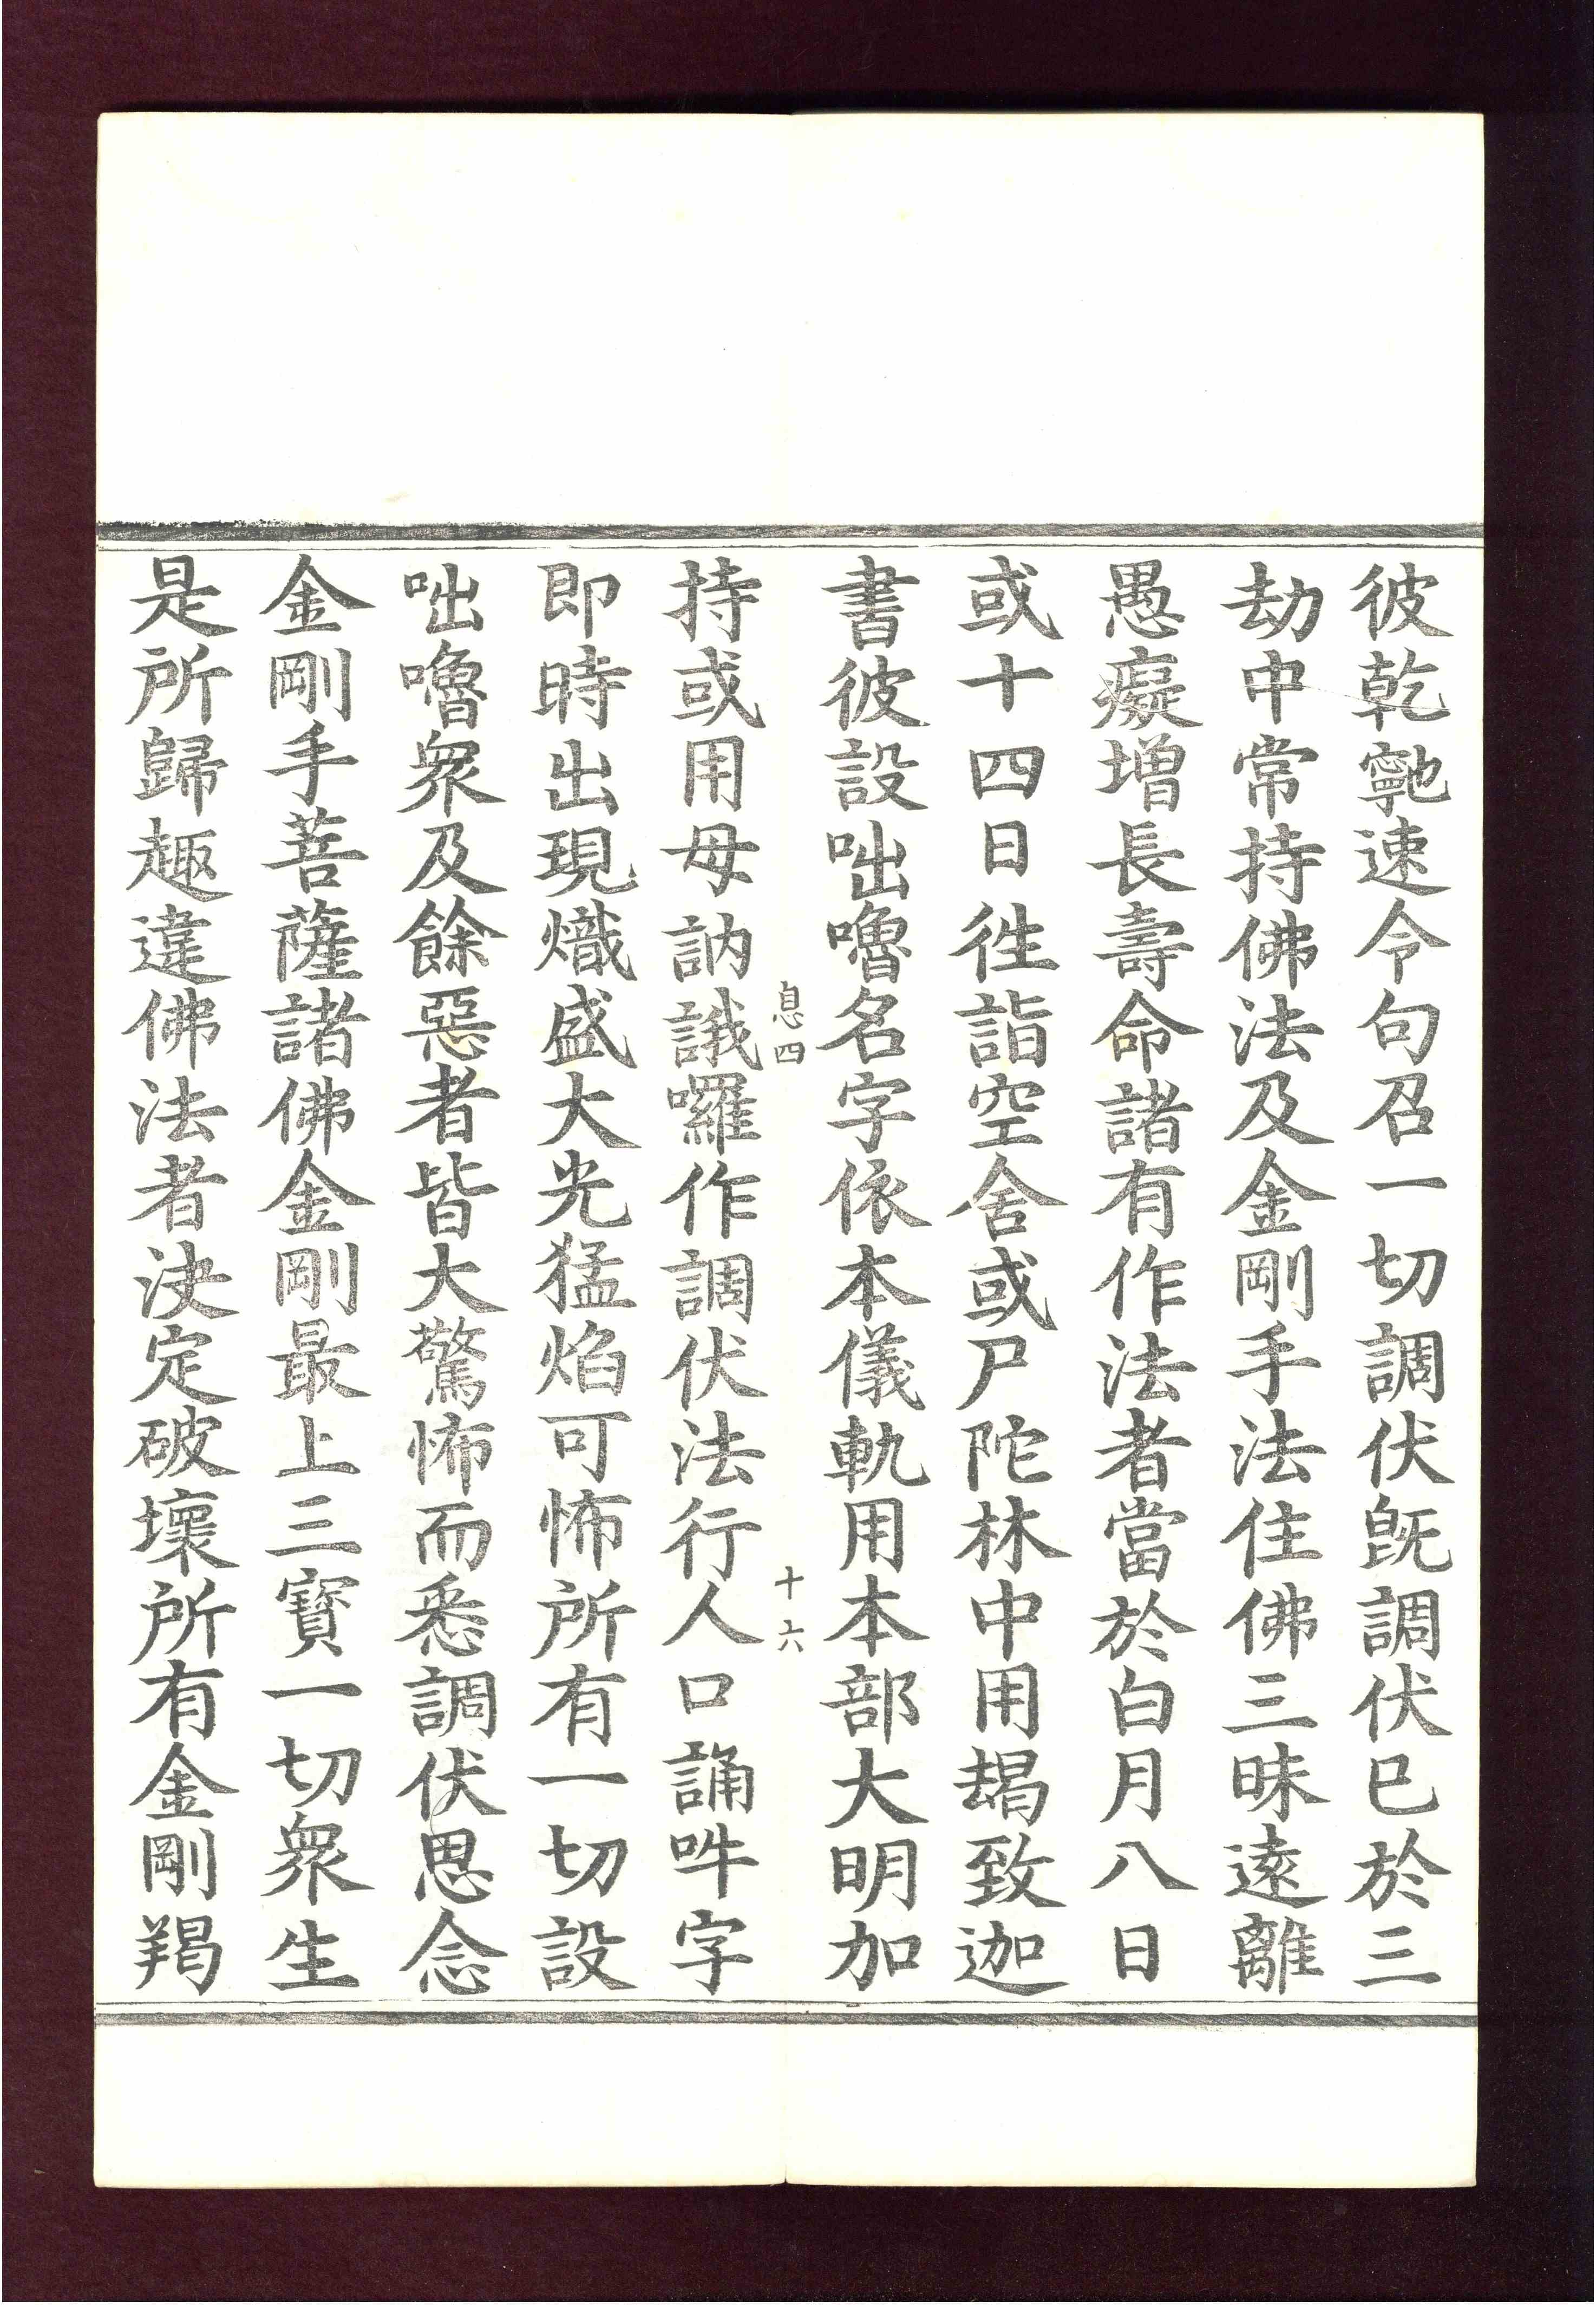 彼乾𪚥速令句召一切調伏旣調伏已於三
劫中常持佛法及金剛手法住佛三昧遠離
愚癡增長壽命諸有作法者當於白月八日
或十四日往詣空舍或尸陀林中用朅致迦
書彼設咄嚕名字依本儀軌用本部大明加
息四 十六
持或用母訥誐囉作調伏法行人口誦吽字
即時出現熾盛大光猛焰可怖所有一切設
咄嚕衆及餘惡者皆大驚怖而悉調伏思念
金剛手菩薩諸佛金剛最上三寶一切衆生
是所歸趣違佛法者決定破壞所有金剛羯